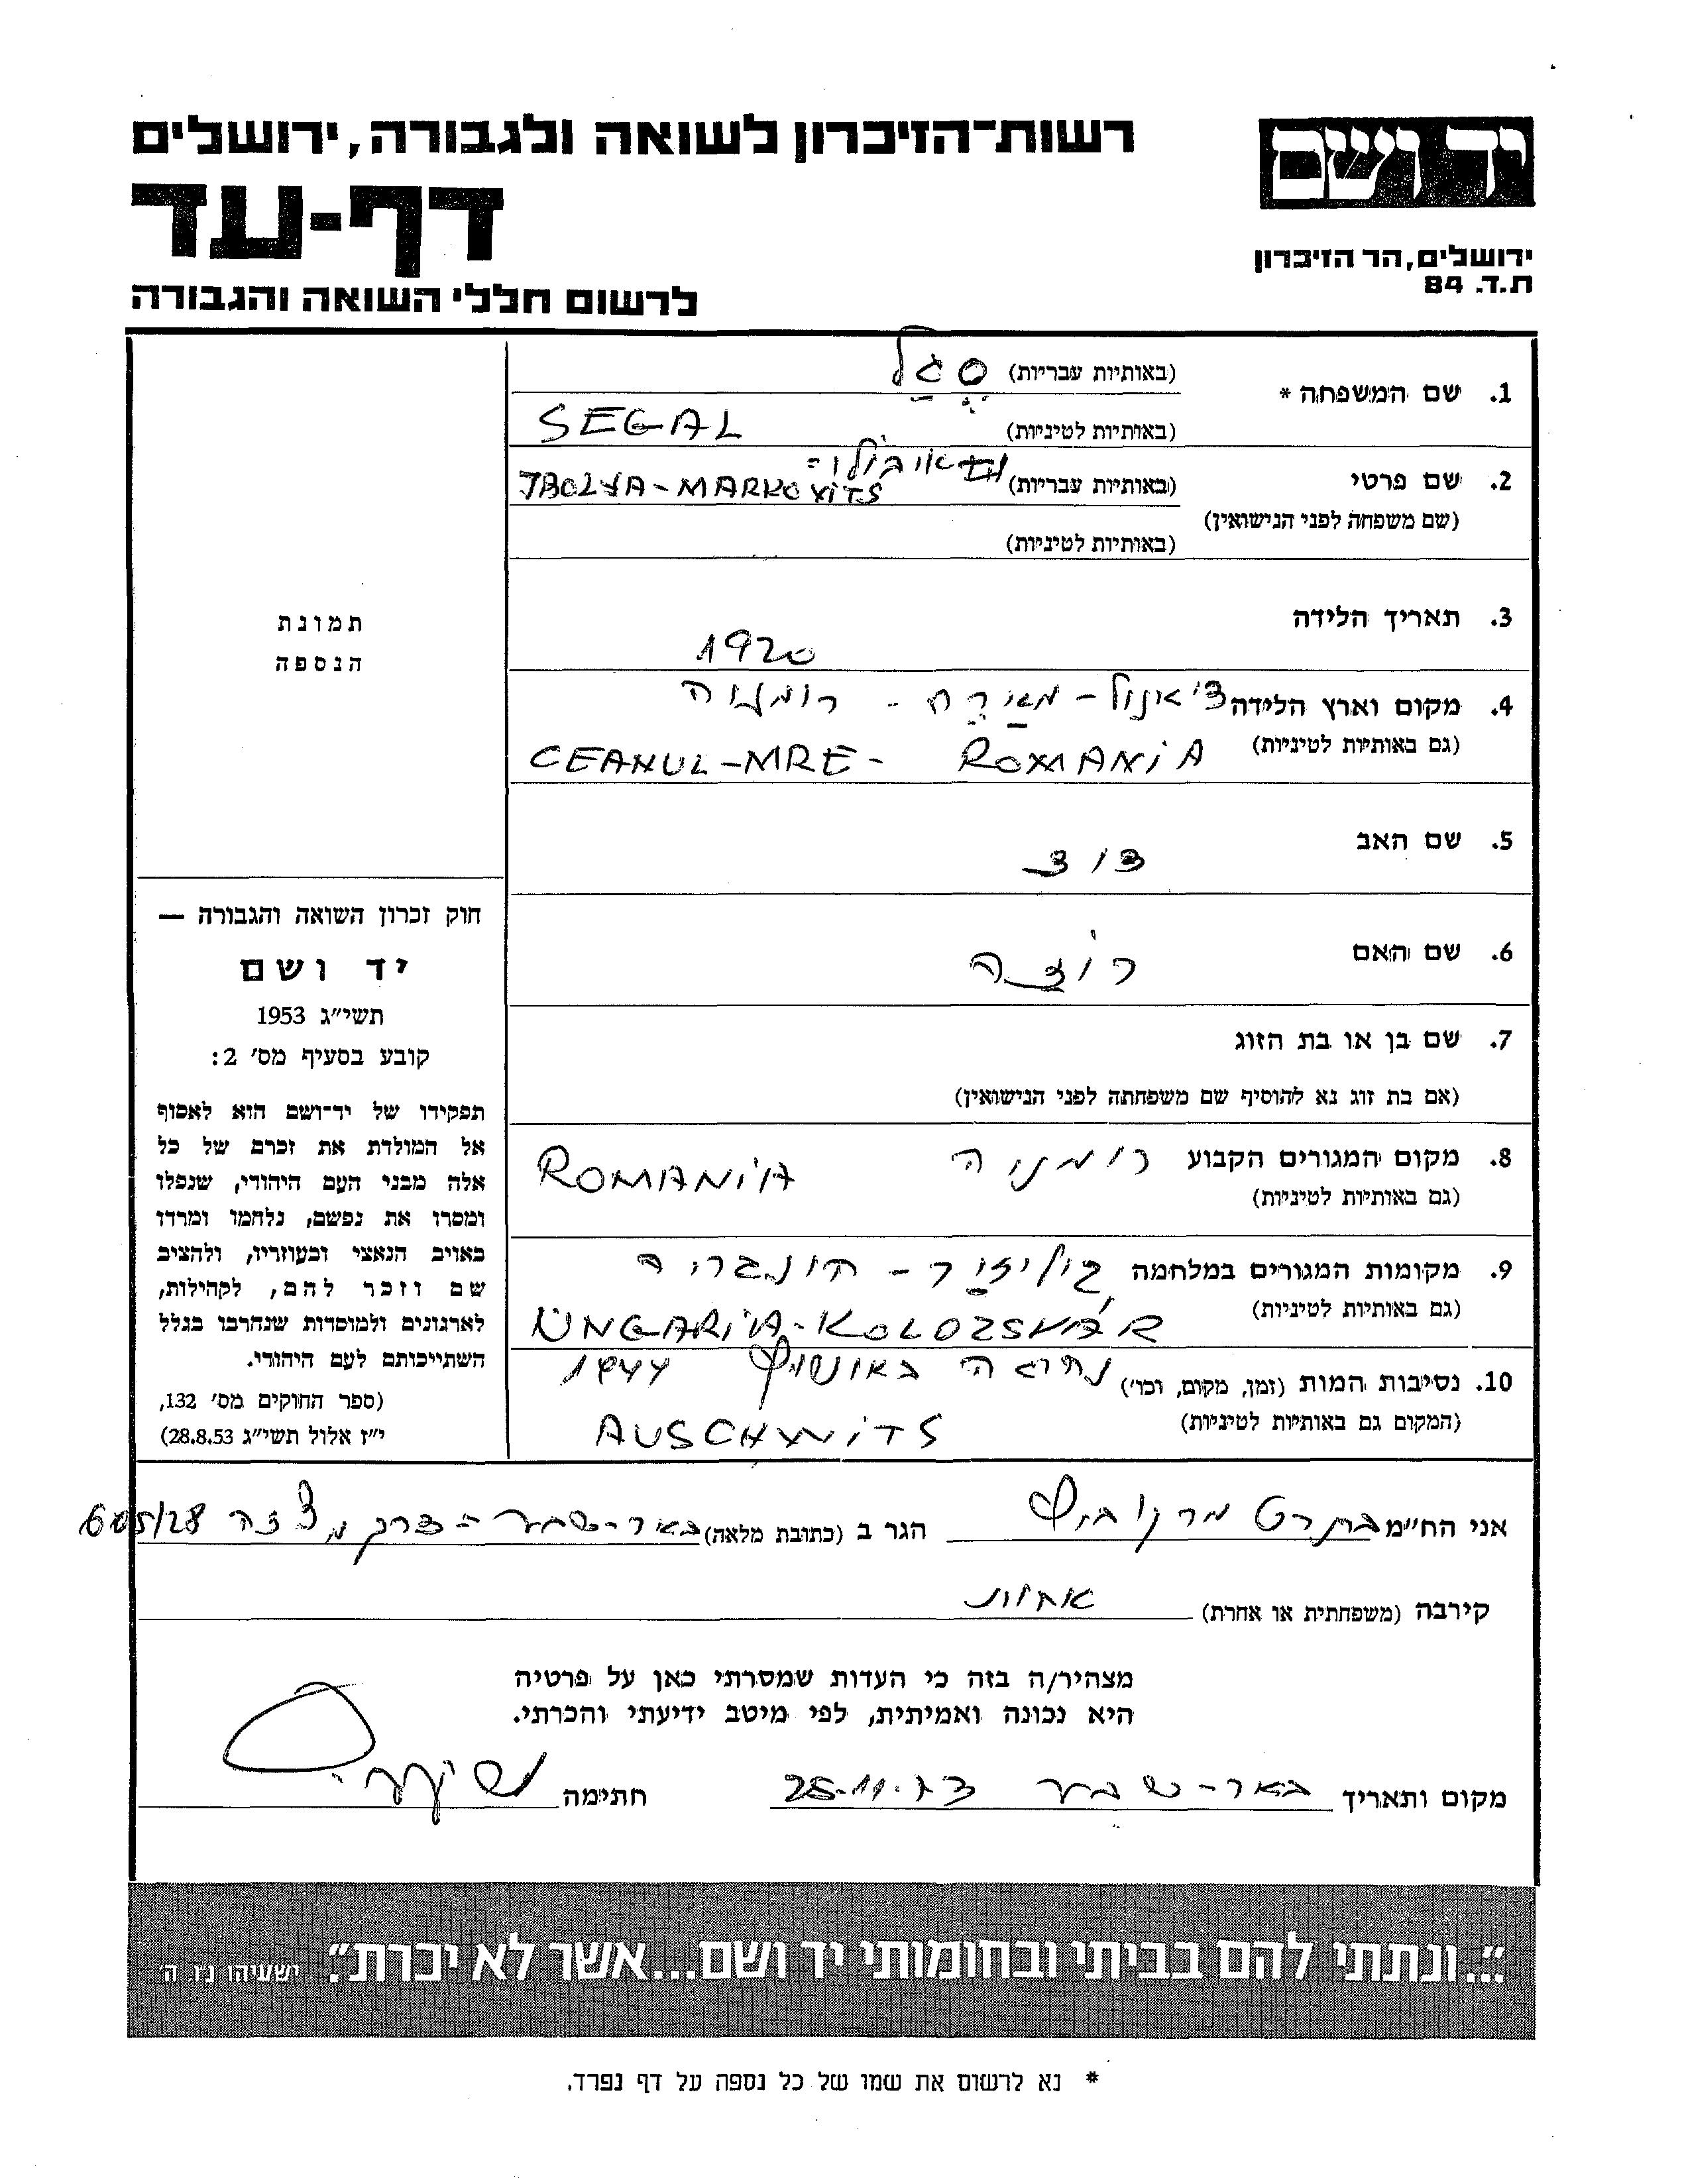 רשות־הזיכרון לשואה ולגבורה, ירושלים
יד ושם
דף-עד
ירושלים, הר הזיכרון
ת.ד. 84
לרשום חללי השואה והגבורה
1. שם המשפחה * (באותיות עבריות) סגל
(באותיות לטיניות) SEGAL
2. שם פרטי (באותיות עבריות) IBOLYA-MARKOVITS
(שם משפחה לפני הנישואין)
(באותיות לטיניות)
3. תאריך הלידה 1920
4. מקום וארץ הלידה צ'אנול-מארה - רומניה
(גם באותיות לטיניות) CEANUL-MRE- ROMANIA
5. שם האב דוד
6. שם האם רוזה
7. שם בן או בת הזוג
(אם בת זוג נא להוסיף שם משפחתה לפני הנישואין)
8. מקום המגורים הקבוע רומניה ROMANIA
(גם באותיות לטיניות)
9. מקומות המגורים במלחמה הונגריה
(גם באותיות לטיניות) UNGARIA-KOLOZSVÁR
10. נסיבות המות (זמן, מקום, וכו') נהרגה באושוויץ 1944
(המקום גם באותיות לטיניות) AUSCHWITS
תמונת
הנספה
חוק זכרון השואה והגבורה —
יד ושם
תשי"ג 1953
קובע בסעיף מס' 2:
תפקידו של יד־ושם הוא לאסוף
אל המולדת את זכרם של כל
אלה מבני העם היהודי, שנפלו
ומסרו את נפשם, נלחמו ומרדו
באויב הנאצי ובעוזריו, ולהציב
שם וזכר להם, לקהילות,
לארגונים ולמוסדות שנחרבו בגלל
השתייכותם לעם היהודי.
(ספר החוקים מס' 132,
י"ז אלול תשי"ג 28.8.53)
אני הח"מ מרקוביץ הגר ב (כתובת מלאה) באר-שבע - דרך מצדה 605/28
קירבה (משפחתית או אחרת) אחות
מצהיר/ה בזה כי העדות שמסרתי כאן על פרטיה
היא נכונה ואמיתית, לפי מיטב ידיעתי והכרתי.
מקום ותאריך באר-שבע חתימה
"...ונתתי להם בביתי ובחומותי יד ושם...אשר לא יכרת". ישעיהו נ"ו ה'
* נא לרשום את שמו של כל נספה על דף נפרד.